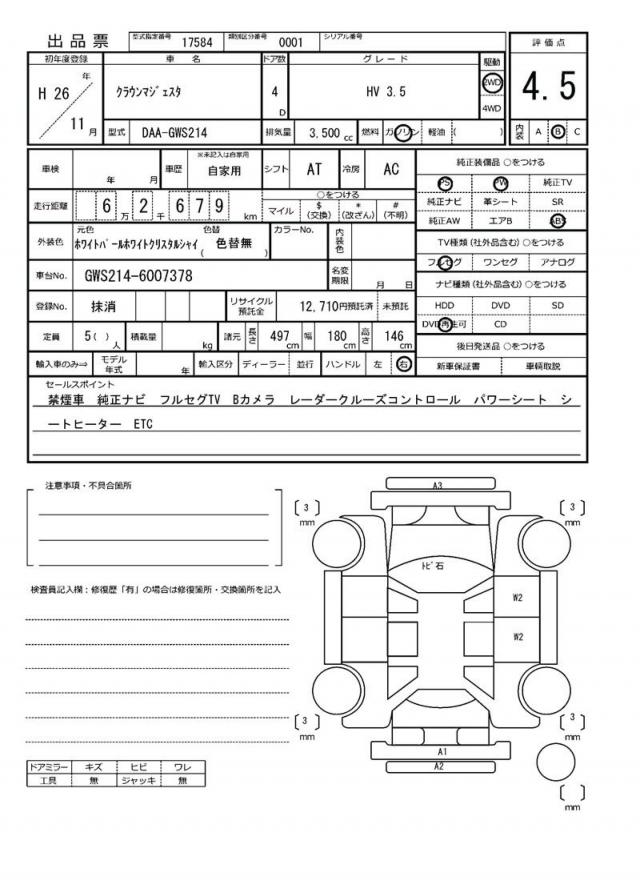 出品票 型式指定番号 17584 類別区分番号 0001 シリアル番号
評価点
4.5
内装 A B C
初年度登録 車名 ドア数 グレード 駆動
H 26 年 11 月 クラウンマジェスタ 4 D HV 3.5 2WD 4WD
型式 DAA-GWS214 排気量 3,500 cc 燃料 ガソリン 軽油 ( )
車検 年 月 車歴 ※未記入は自家用 自家用 シフト AT 冷房 AC
走行距離 6 万 2 千 6 7 9 km ○をつける
マイル $ (交換) * (改ざん) # (不明)
外装色 元色 ホワイトパールホワイトクリスタルシャイ 色替 ( 色替無 ) カラーNo. 内装色
車台No. GWS214-6007378 名変期限 月 日
登録No. 抹消 リサイクル預託金 12,710円預託済 未預託
定員 5( ) 人 積載量 kg 諸元 長さ 497 cm 幅 180 cm 高さ 146 cm
輸入車のみ⇒ モデル年式 年 輸入区分 ディーラー 並行 ハンドル 左 右
純正装備品 ○をつける
PS PW 純正TV
純正ナビ 革シート SR
純正AW エアB ABS
TV種類(社外品含む) ○をつける
フルセグ ワンセグ アナログ
ナビ種類(社外品含む) ○をつける
HDD DVD SD
DVD再生可 CD
後日発送品 ○をつける
新車保証書 車輌取説
セールスポイント
禁煙車 純正ナビ フルセグTV Bカメラ レーダークルーズコントロール パワーシート シ
ートヒーター ETC
注意事項・不具合箇所
検査員記入欄：修復歴「有」の場合は修復箇所・交換箇所を記入
ドアミラー キズ ヒビ ワレ
工具 無 ジャッキ 無
A3
[ 3 ] mm
[ 3 ] mm
トビ石
W2
W2
[ 3 ] mm
[ 3 ] mm
A1
A2
[ ] mm